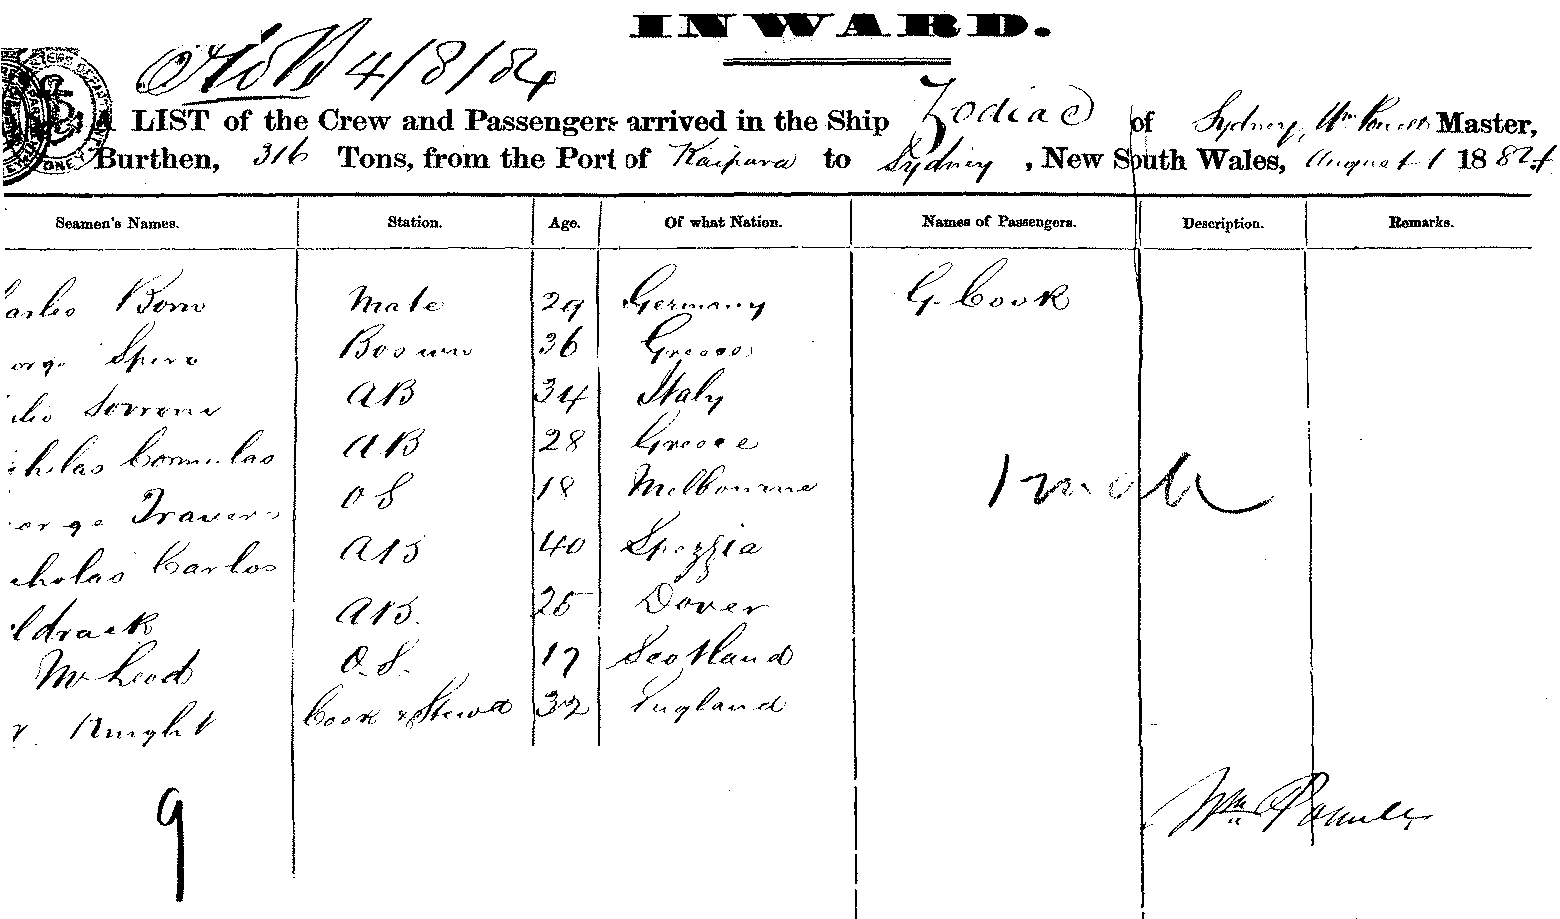 INWARD.
4/8/84
A LIST of the Crew and Passengers arrived in the Ship Zodiac of Sydney, Wm Powell Master,
Burthen, 316 Tons, from the Port of Kaipara to Sydney, New South Wales, August 1 1884
Seamen's Names. Station. Age. Of what Nation. Names of Passengers. Description. Remarks.
Born Mate 29 Germany G. Cook
Spiro Bosun 36 Greece
AB 34 Italy
AB 28 Greece
Travers OS 18 Melbourne
Carlos AB 40 Spezzia
ldrack AB. 25 Dover
McLeod O.S. 17 Scotland
Knight Cook & Stewd 32 England
1
9
Wm Powell